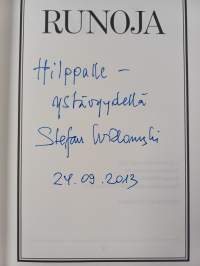 RUNOJA
Hilppalle –
ystävyydellä
Stefan Widomski
24.09.2013